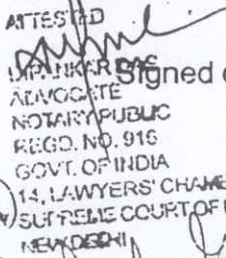 ATTESTED
Signed
DIPANKAR DAS
ADVOCATE
NOTARY PUBLIC
REGD. NO. 916
GOVT. OF INDIA
14, LAWYERS' CHAM
SUPREME COURT OF
NEW DELHI